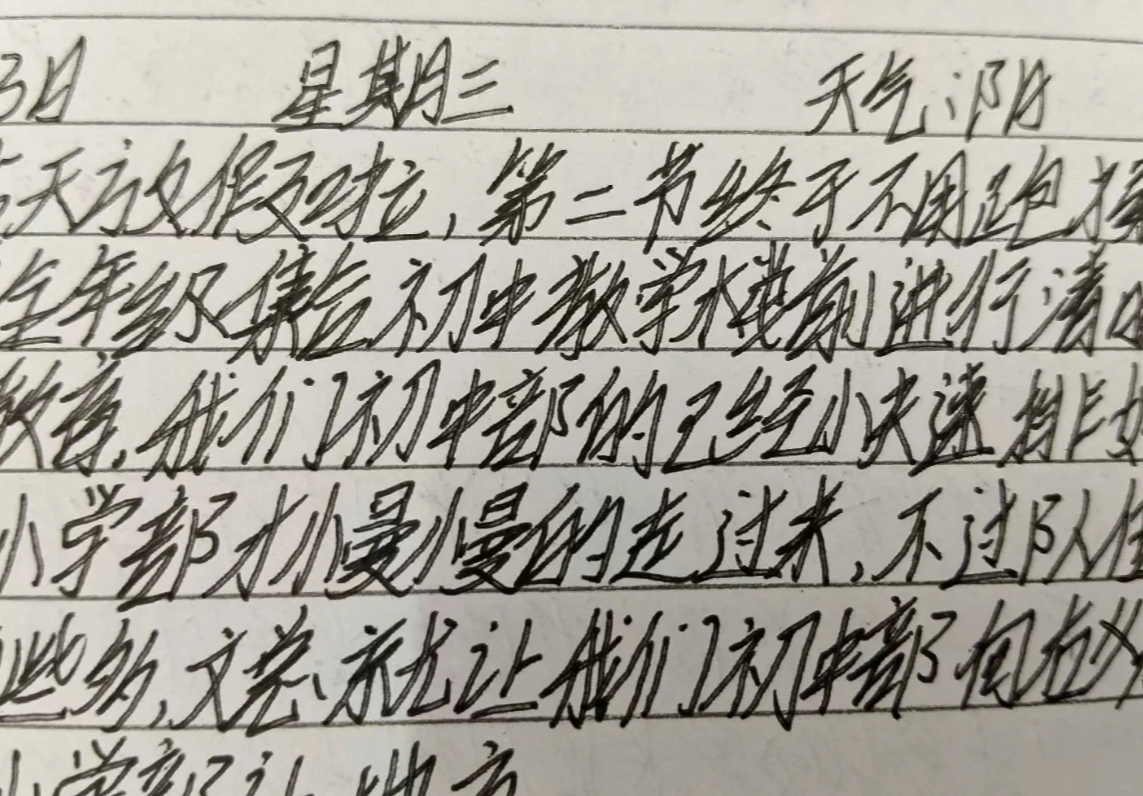 3日 星期三 天气:阴
天放假啦,第二节终于不用跑操
全年级集合初中教学楼前进行清明
教育,我们初中部的已经快速排好
小学部才慢慢的走过来,不过队伍
些多,文尧就让我们初中部向右
小学部让地方